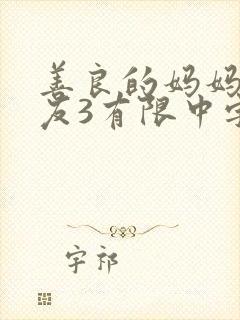 善良的妈妈
友3有限中字
字祁